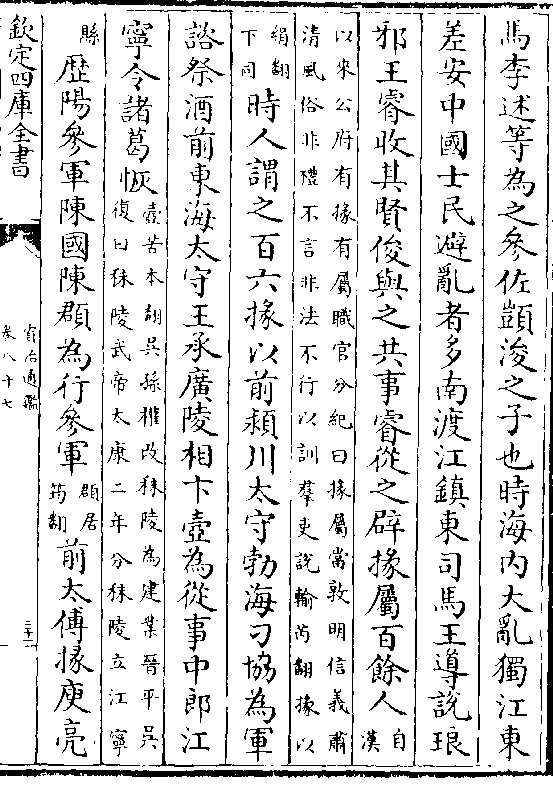 馬李述等為之參佐顗浚之子也時海内大亂獨江東
差安中國士民避亂者多南渡江鎮東司馬王導說琅
邪王睿收其賢俊與之共事睿從之辟掾屬百餘人自漢
以來公府有掾有屬職官分紀曰掾屬當敦明信義肅
清風俗非禮不言非法不行以訓羣吏說輸芮翻掾以
絹翻下同時人謂之百六掾以前潁川太守勃海刁協為軍
諮祭酒前東海太守王承廣陵相卞壼為從事中郎江
寧令諸葛恢壼苦本翻吳孫權改秣陵為建業晉平吳
復曰秣陵武帝太康二年分秣陵立江寧
縣歴陽參軍陳國陳頵為行參軍頵居筠翻前太傅掾庾亮
欽定四庫全書
資治通鑑
卷八十七